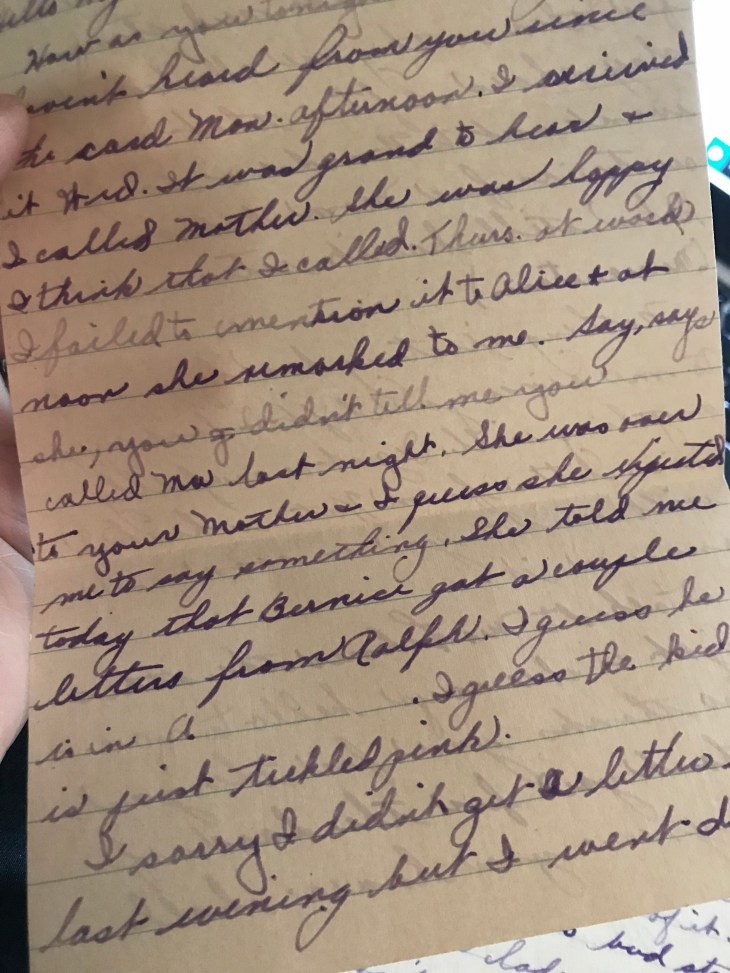 How are you tonight
haven't heard from you since
the card Mon. afternoon. I received
it Wed. It was grand to hear &
I called Mother. She was happy
I think that I called. Thurs. at work
I failed to mention it to Alice & at
noon she remarked to me. Say, says
she, you didn't tell me you
called Ma last night. She was over
to your Mother & I guess she expected
me to say something. She told me
today that Bernice got a couple
letters from Ralph. I guess he
is in A . I guess the kid
is just tickled pink.
I sorry I didn't get a letter
last evening but I went
of it.
bad
had